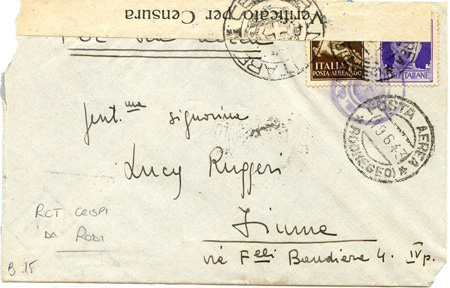 Verificato per Censura
Per via aerea
ITALIA
POSTA AEREA
ITALIANE
POSTA AEREA
RODI (EGEO)
Gent.ma Signorina
Lucy Ruggeri
Fiume
via F.elli Bandiera 4. IV p.
RGT CRISPI
DA RODI
B.15